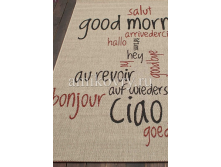 salut
good morn
arrivederci
hallo
hey
goodbye
au revoir
auf wieders
bonjour
ciao
goed